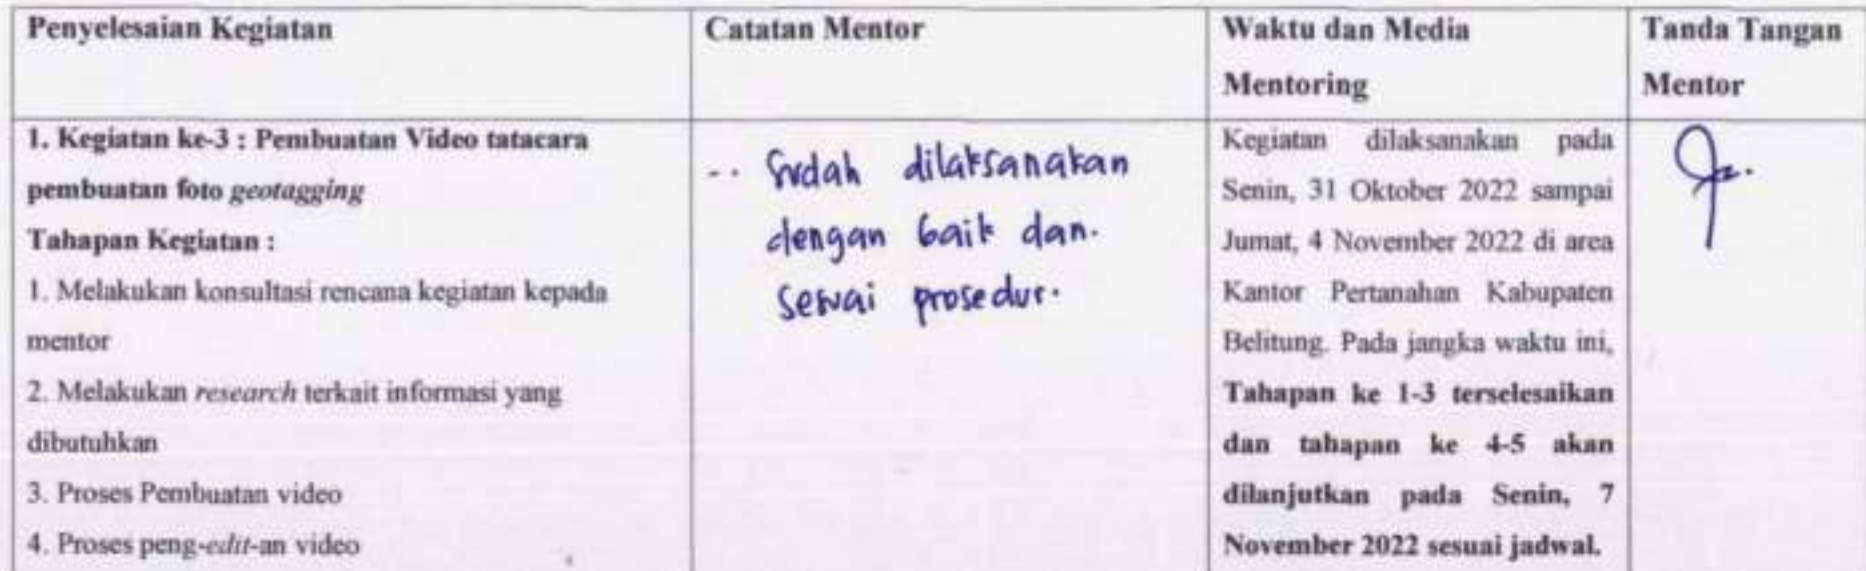 Penyelesaian Kegiatan
Catatan Mentor
Waktu dan Media
Mentoring
Tanda Tangan
Mentor
1. Kegiatan ke-3 : Pembuatan Video tatacara
pembuatan foto geotagging
Tahapan Kegiatan :
1. Melakukan konsultasi rencana kegiatan kepada
mentor
2. Melakukan research terkait informasi yang
dibutuhkan
3. Proses Pembuatan video
4. Proses peng-edit-an video
-. Sudah dilaksanakan
dengan baik dan.
sesuai prosedur.
Kegiatan dilaksanakan pada
Senin, 31 Oktober 2022 sampai
Jumat, 4 November 2022 di area
Kantor Pertanahan Kabupaten
Belitung. Pada jangka waktu ini,
Tahapan ke 1-3 terselesaikan
dan tahapan ke 4-5 akan
dilanjutkan pada Senin, 7
November 2022 sesuai jadwal.